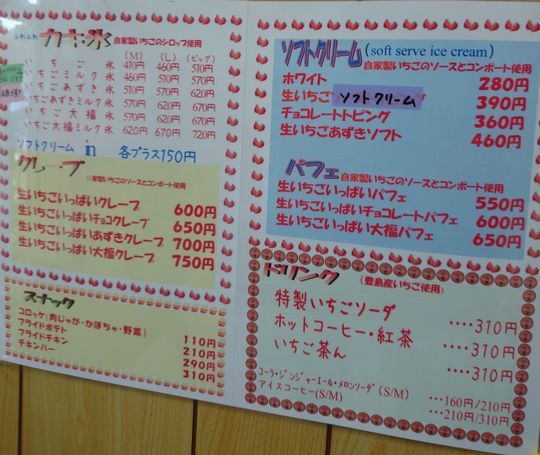 ふわふわ カキ氷 自家製いちごのシロップ使用
(M) (L) (ビッグ)
いちご氷 410円 460円 510円
いちごミルク氷 460円 510円 570円
いちごあずき氷 510円 570円 620円
いちごあずきミルク氷 570円 620円 670円
いちご大福氷 570円 620円 670円
いちご大福ミルク氷 620円 670円 720円
ソフトクリーム in 各プラス150円
クレープ 自家製いちごのソースとコンポート使用
生いちごいっぱいクレープ 600円
生いちごいっぱいチョコクレープ 650円
生いちごいっぱいあずきクレープ 700円
生いちごいっぱい大福クレープ 750円
スナック
コロッケ(肉じゃが・かぼちゃ・野菜) 110円
フライドポテト 210円
フライドチキン 290円
チキンバー 310円
ソフトクリーム(soft serve ice cream)
自家製いちごのソースとコンポート使用
ホワイト 280円
生いちごソフトクリーム 390円
チョコレートトッピング 360円
生いちごあずきソフト 460円
パフェ 自家製いちごのソースとコンポート使用
生いちごいっぱいパフェ 550円
生いちごいっぱいチョコレートパフェ 600円
生いちごいっぱい大福パフェ 650円
ドリンク (豊島産いちご使用)
特製いちごソーダ ‥‥310円
ホットコーヒー・紅茶 ‥‥310円
いちご茶ん ‥‥310円
コーラ・ジンジャーエール・メロンソーダ (S/M) ‥‥160円/210円
アイスコーヒー(S/M) ‥‥210円/310円